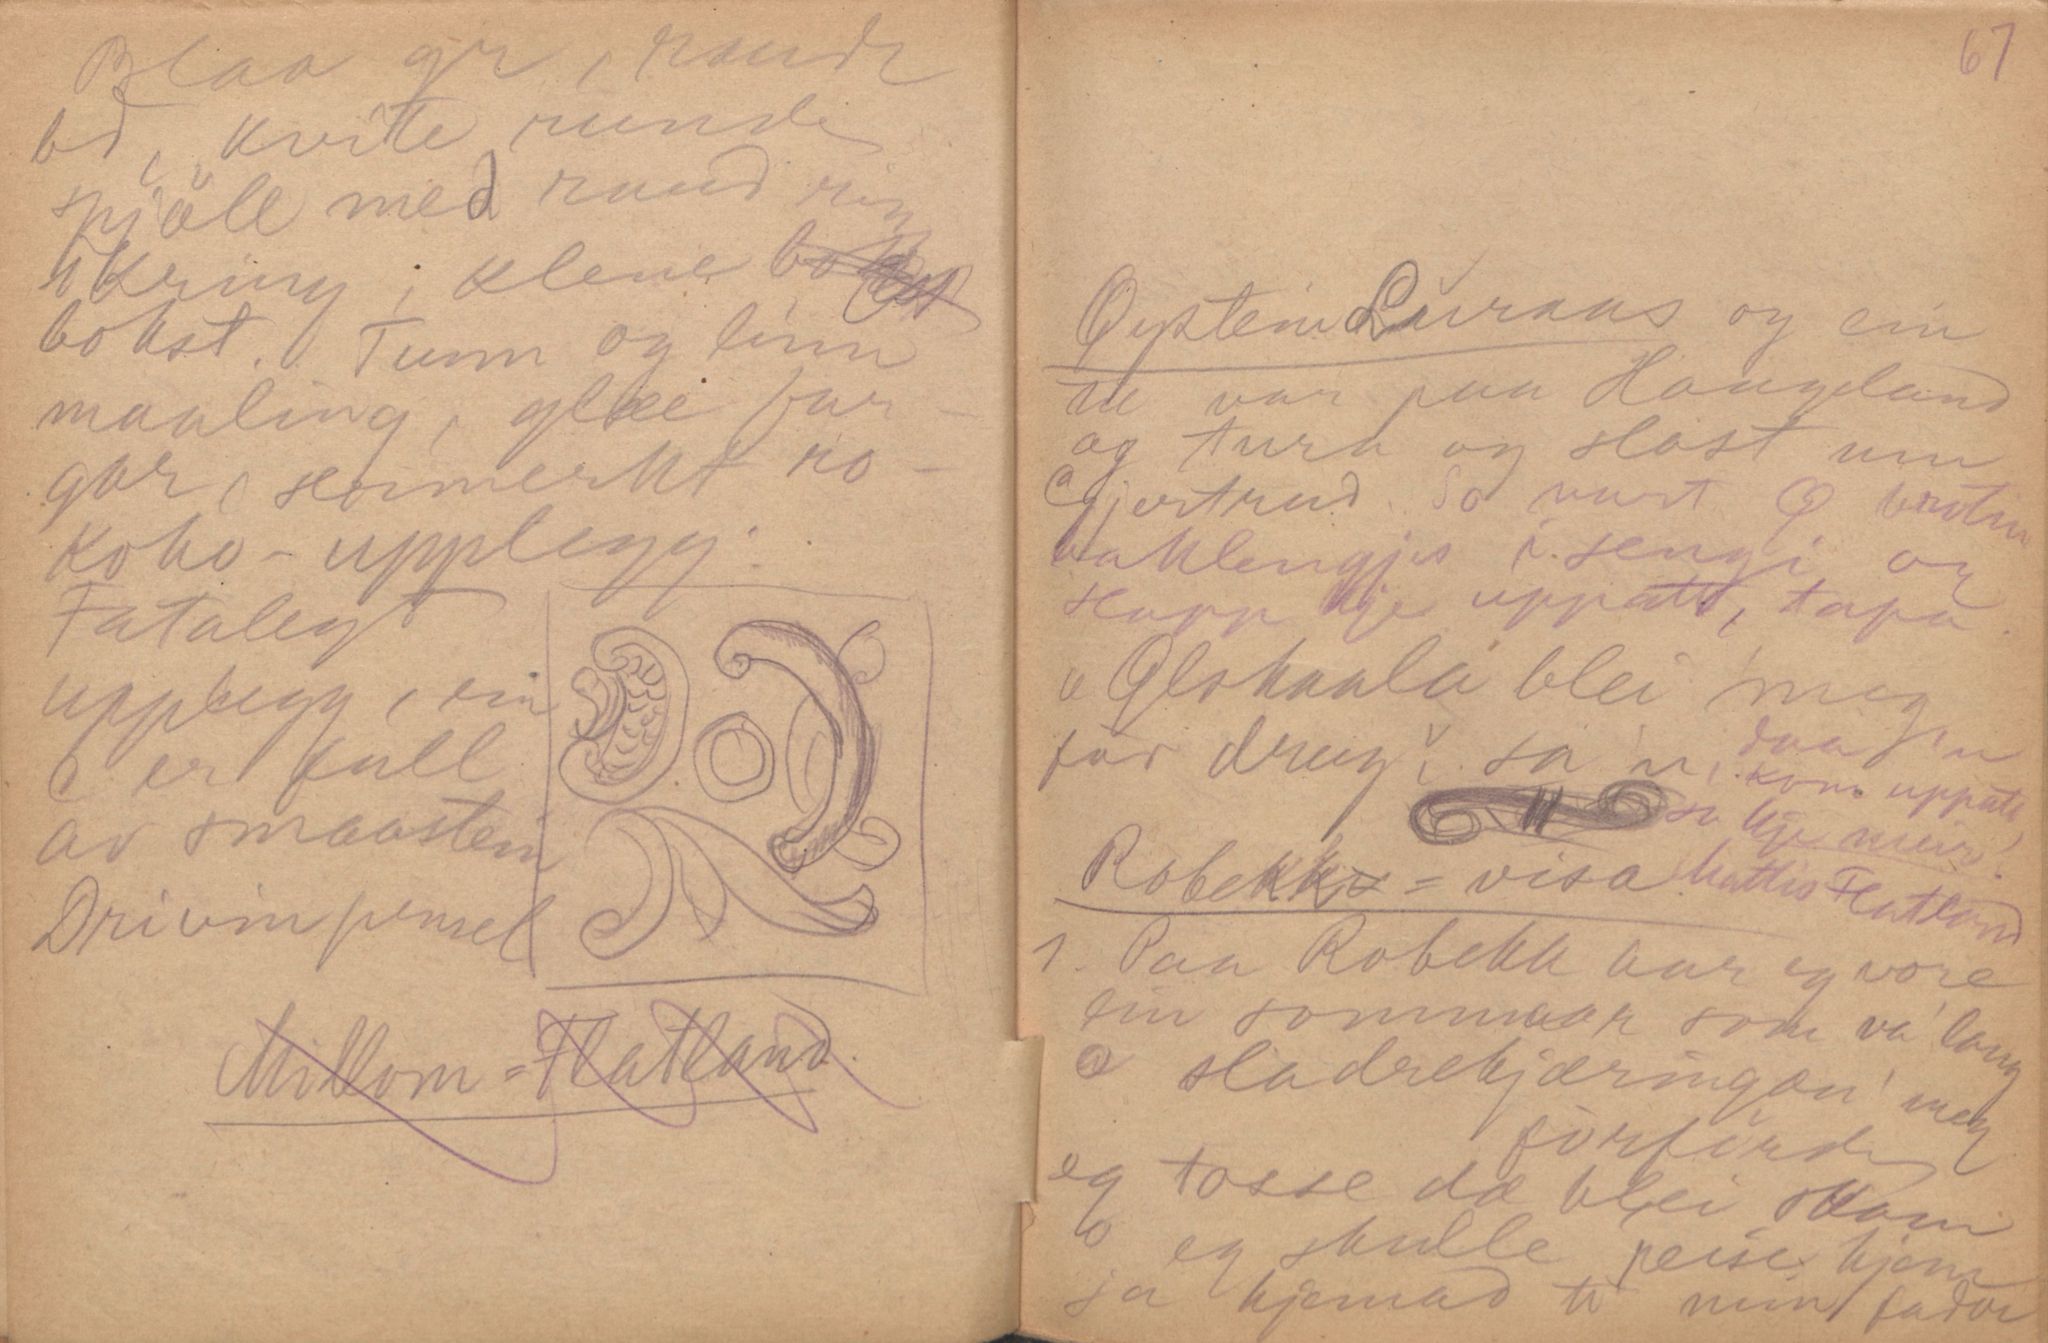 Blaa gr, raude
bd, kvite runde
spjöll med raud ring
ikring, klene
bokst. Tunn og linn
maaling, glae far-
gar, sermerkt ro-
koko-upplegg.
Fatalegt
upplegg, ein
er full
av smaastein
Drivin pensel
Millom-Flatland.
67
Øystein Lurraas og ein
te var paa Haugeland
og tura og slost um
Gjertrud. So vart Ø brotin
baklengjes i sengi og
slapp kje uppatt, tapa.
"Olskaala blei meg
for drug", sa 'n, daa 'n
kom uppatt,
sa kje meir!
Robekk-visa Mattis Flatland
1. Paa Robekk har eg vore
ein sommaar som va' lang
o sladrekjæringan' meg
forförde
eg tosse dæ blei skam
o eg skulle reise hjem
ja hjemad te min fador